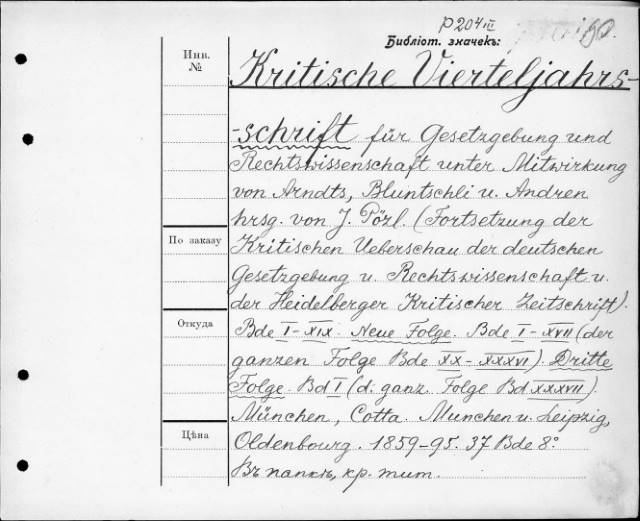 P 204 III
Библіот. значекъ:
Инв.
№
Kritische Vierteljahrs-
-schrift für Gesetzgebung und
Rechtswissenschaft unter Mitwirkung
von Arndts, Bluntschli u. Andren
hrsg. von J. Pözl. (Fortsetzung der
По заказу
Kritischen Ueberschau der deutschen
Gesetzgebung u. Rechtswissenschaft u.
der Heidelberger Kritischer Zeitschrift).
Откуда
Bde I-XIX. Neue Folge. Bde I-XVII (der
ganzen Folge Bde XX-XXXVI). Dritte
Folge. Bd I (d. ganz. Folge Bd XXXVII).
München, Cotta. Munchen u. Leipzig,
Цѣна
Oldenbourg. 1859-95. 37 Bde 8°.
Въ папкѣ, кр. тит.